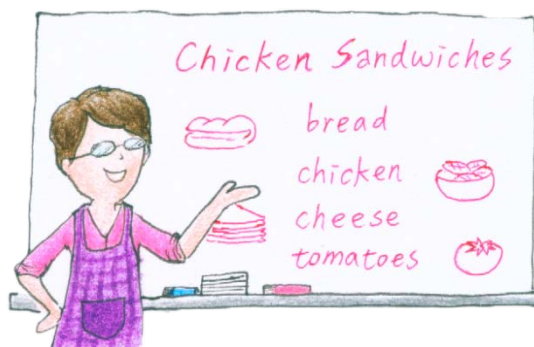 Chicken Sandwiches
bread
chicken
cheese
tomatoes